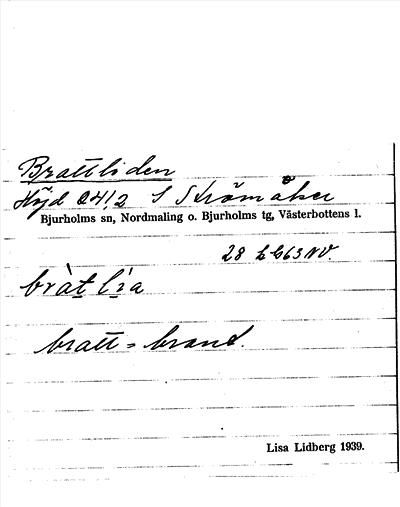 Brattliden
Höjd 241,2 S Strömåker
Bjurholms sn, Nordmaling o. Bjurholms tg, Västerbottens l.
28 63 NV.
bràt lía
bratt = brant.
Lisa Lidberg 1939.